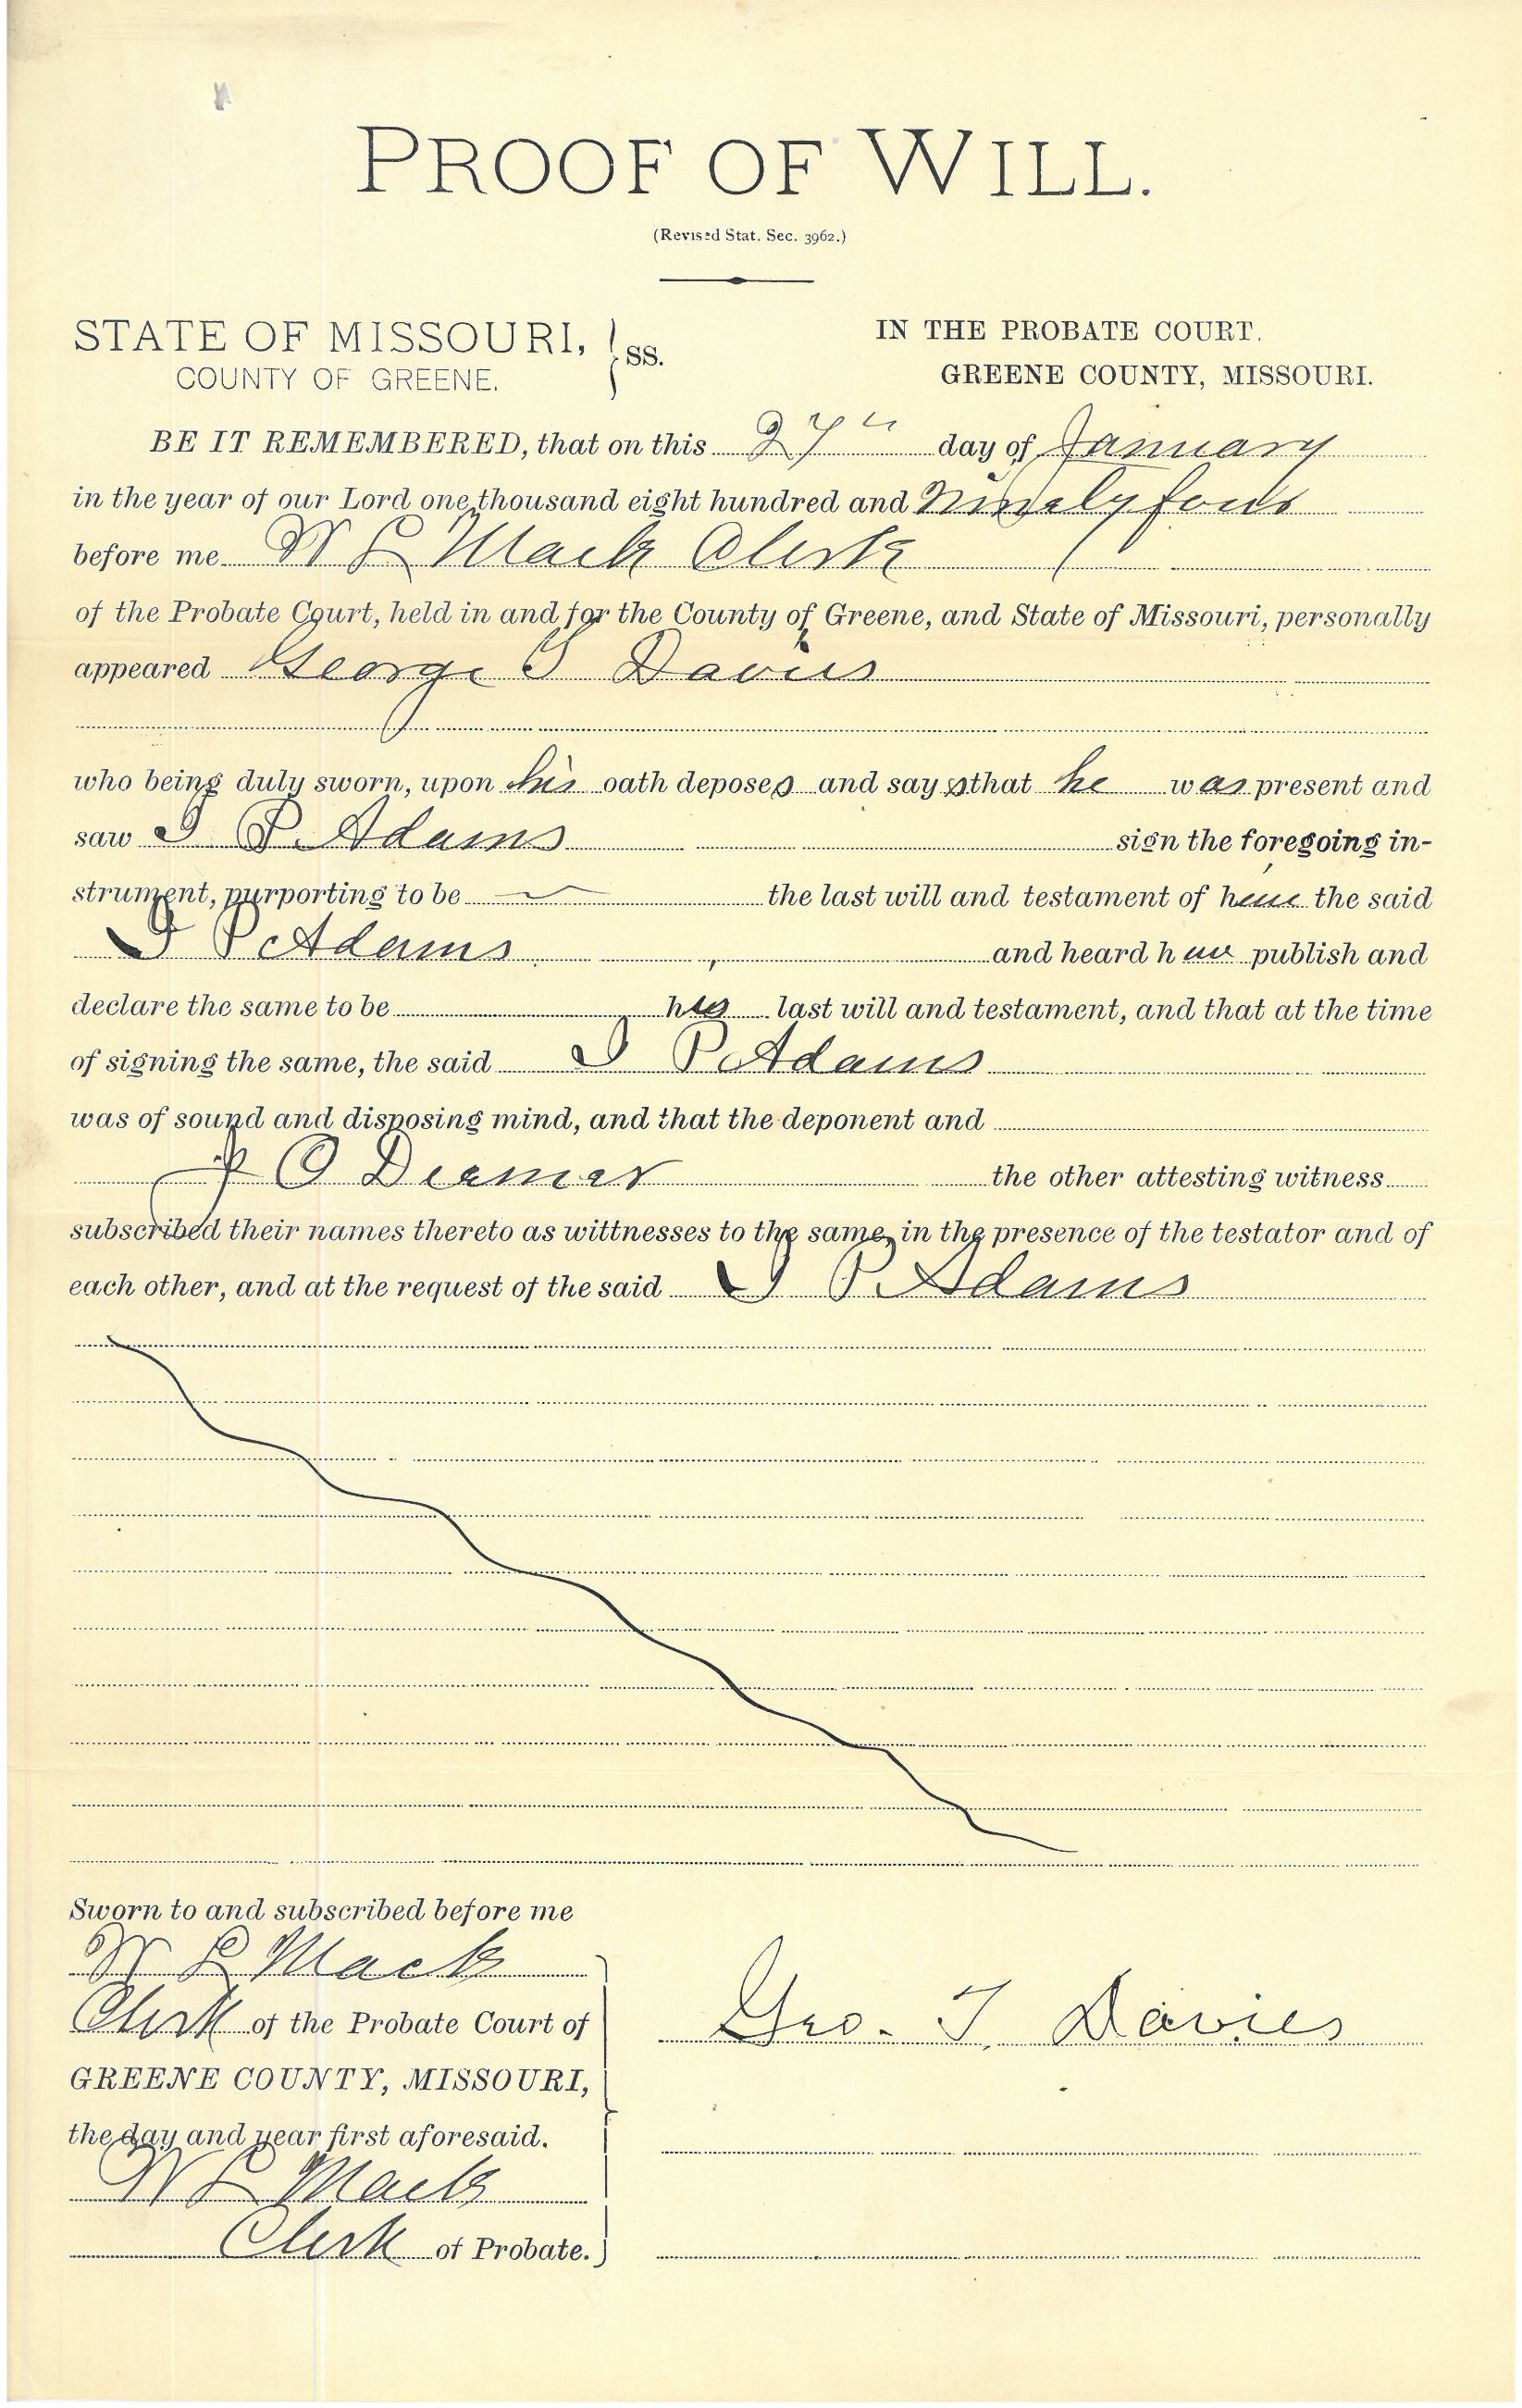 PROOF OF WILL.
(Revised Stat. Sec. 3962.)
STATE OF MISSOURI, } SS.
COUNTY OF GREENE.
IN THE PROBATE COURT.
GREENE COUNTY, MISSOURI.
BE IT REMEMBERED, that on this 27th day of January
in the year of our Lord one thousand eight hundred and Ninety four
before me W L Mack Clerk
of the Probate Court, held in and for the County of Greene, and State of Missouri, personally
appeared George T Davies
who being duly sworn, upon his oath deposes and says that he was present and
saw I P. Adams sign the foregoing in-
strument, purporting to be the last will and testament of him the said
I P Adams and heard him publish and
declare the same to be his last will and testament, and that at the time
of signing the same, the said I P Adams
was of sound and disposing mind, and that the deponent and
J O Diemer the other attesting witness
subscribed their names thereto as wittnesses to the same, in the presence of the testator and of
each other, and at the request of the said I P. Adams
Sworn to and subscribed before me
W L Mack
Clerk of the Probate Court of
GREENE COUNTY, MISSOURI,
the day and year first aforesaid.
W L Mack
Clerk of Probate.
Geo. T. Davies